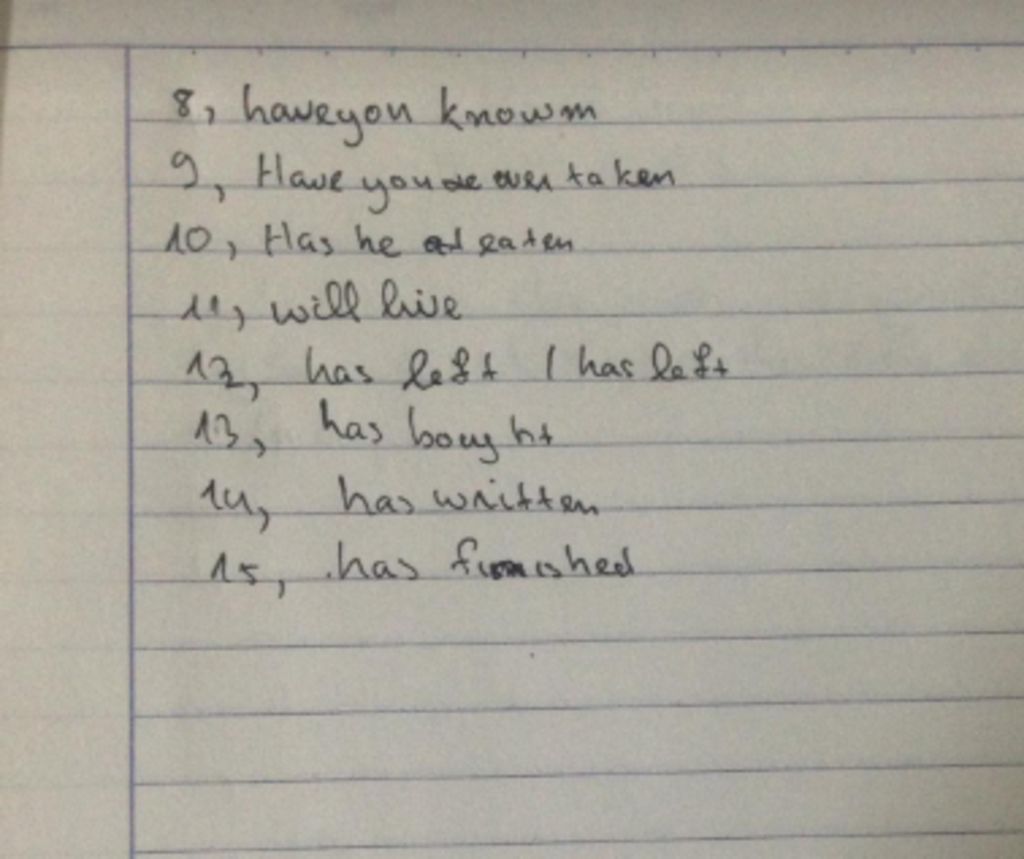 8, have you knowm
9, Have you ever taken
10, Has he eaten
11, will live
12, has left / has left
13, has bought
14, has written
15, has finished